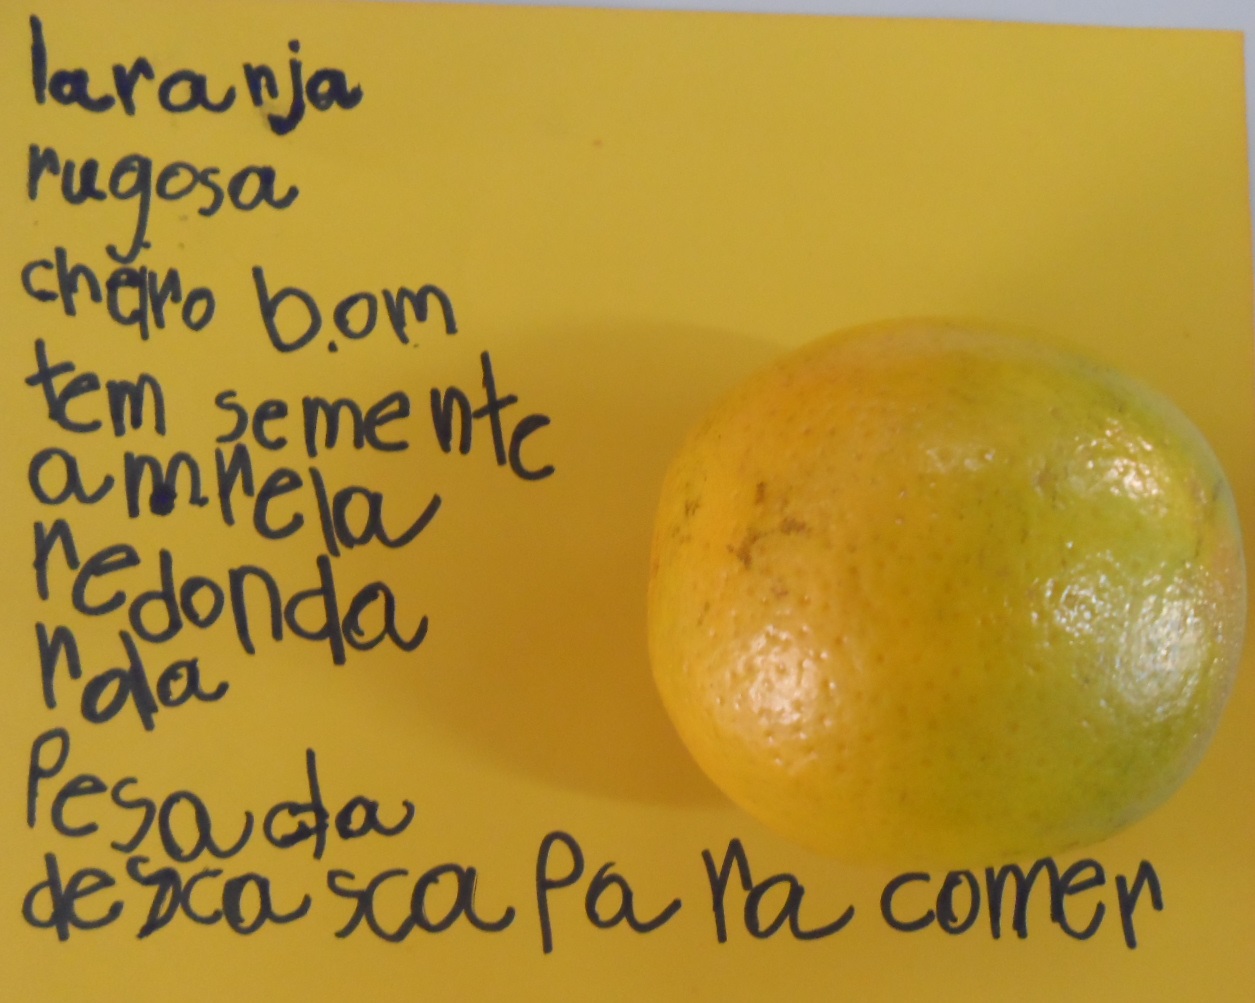 laranja
rugosa
cheiro bom
tem semente
amrela
redonda
rola
Pesada
descasca Para comer